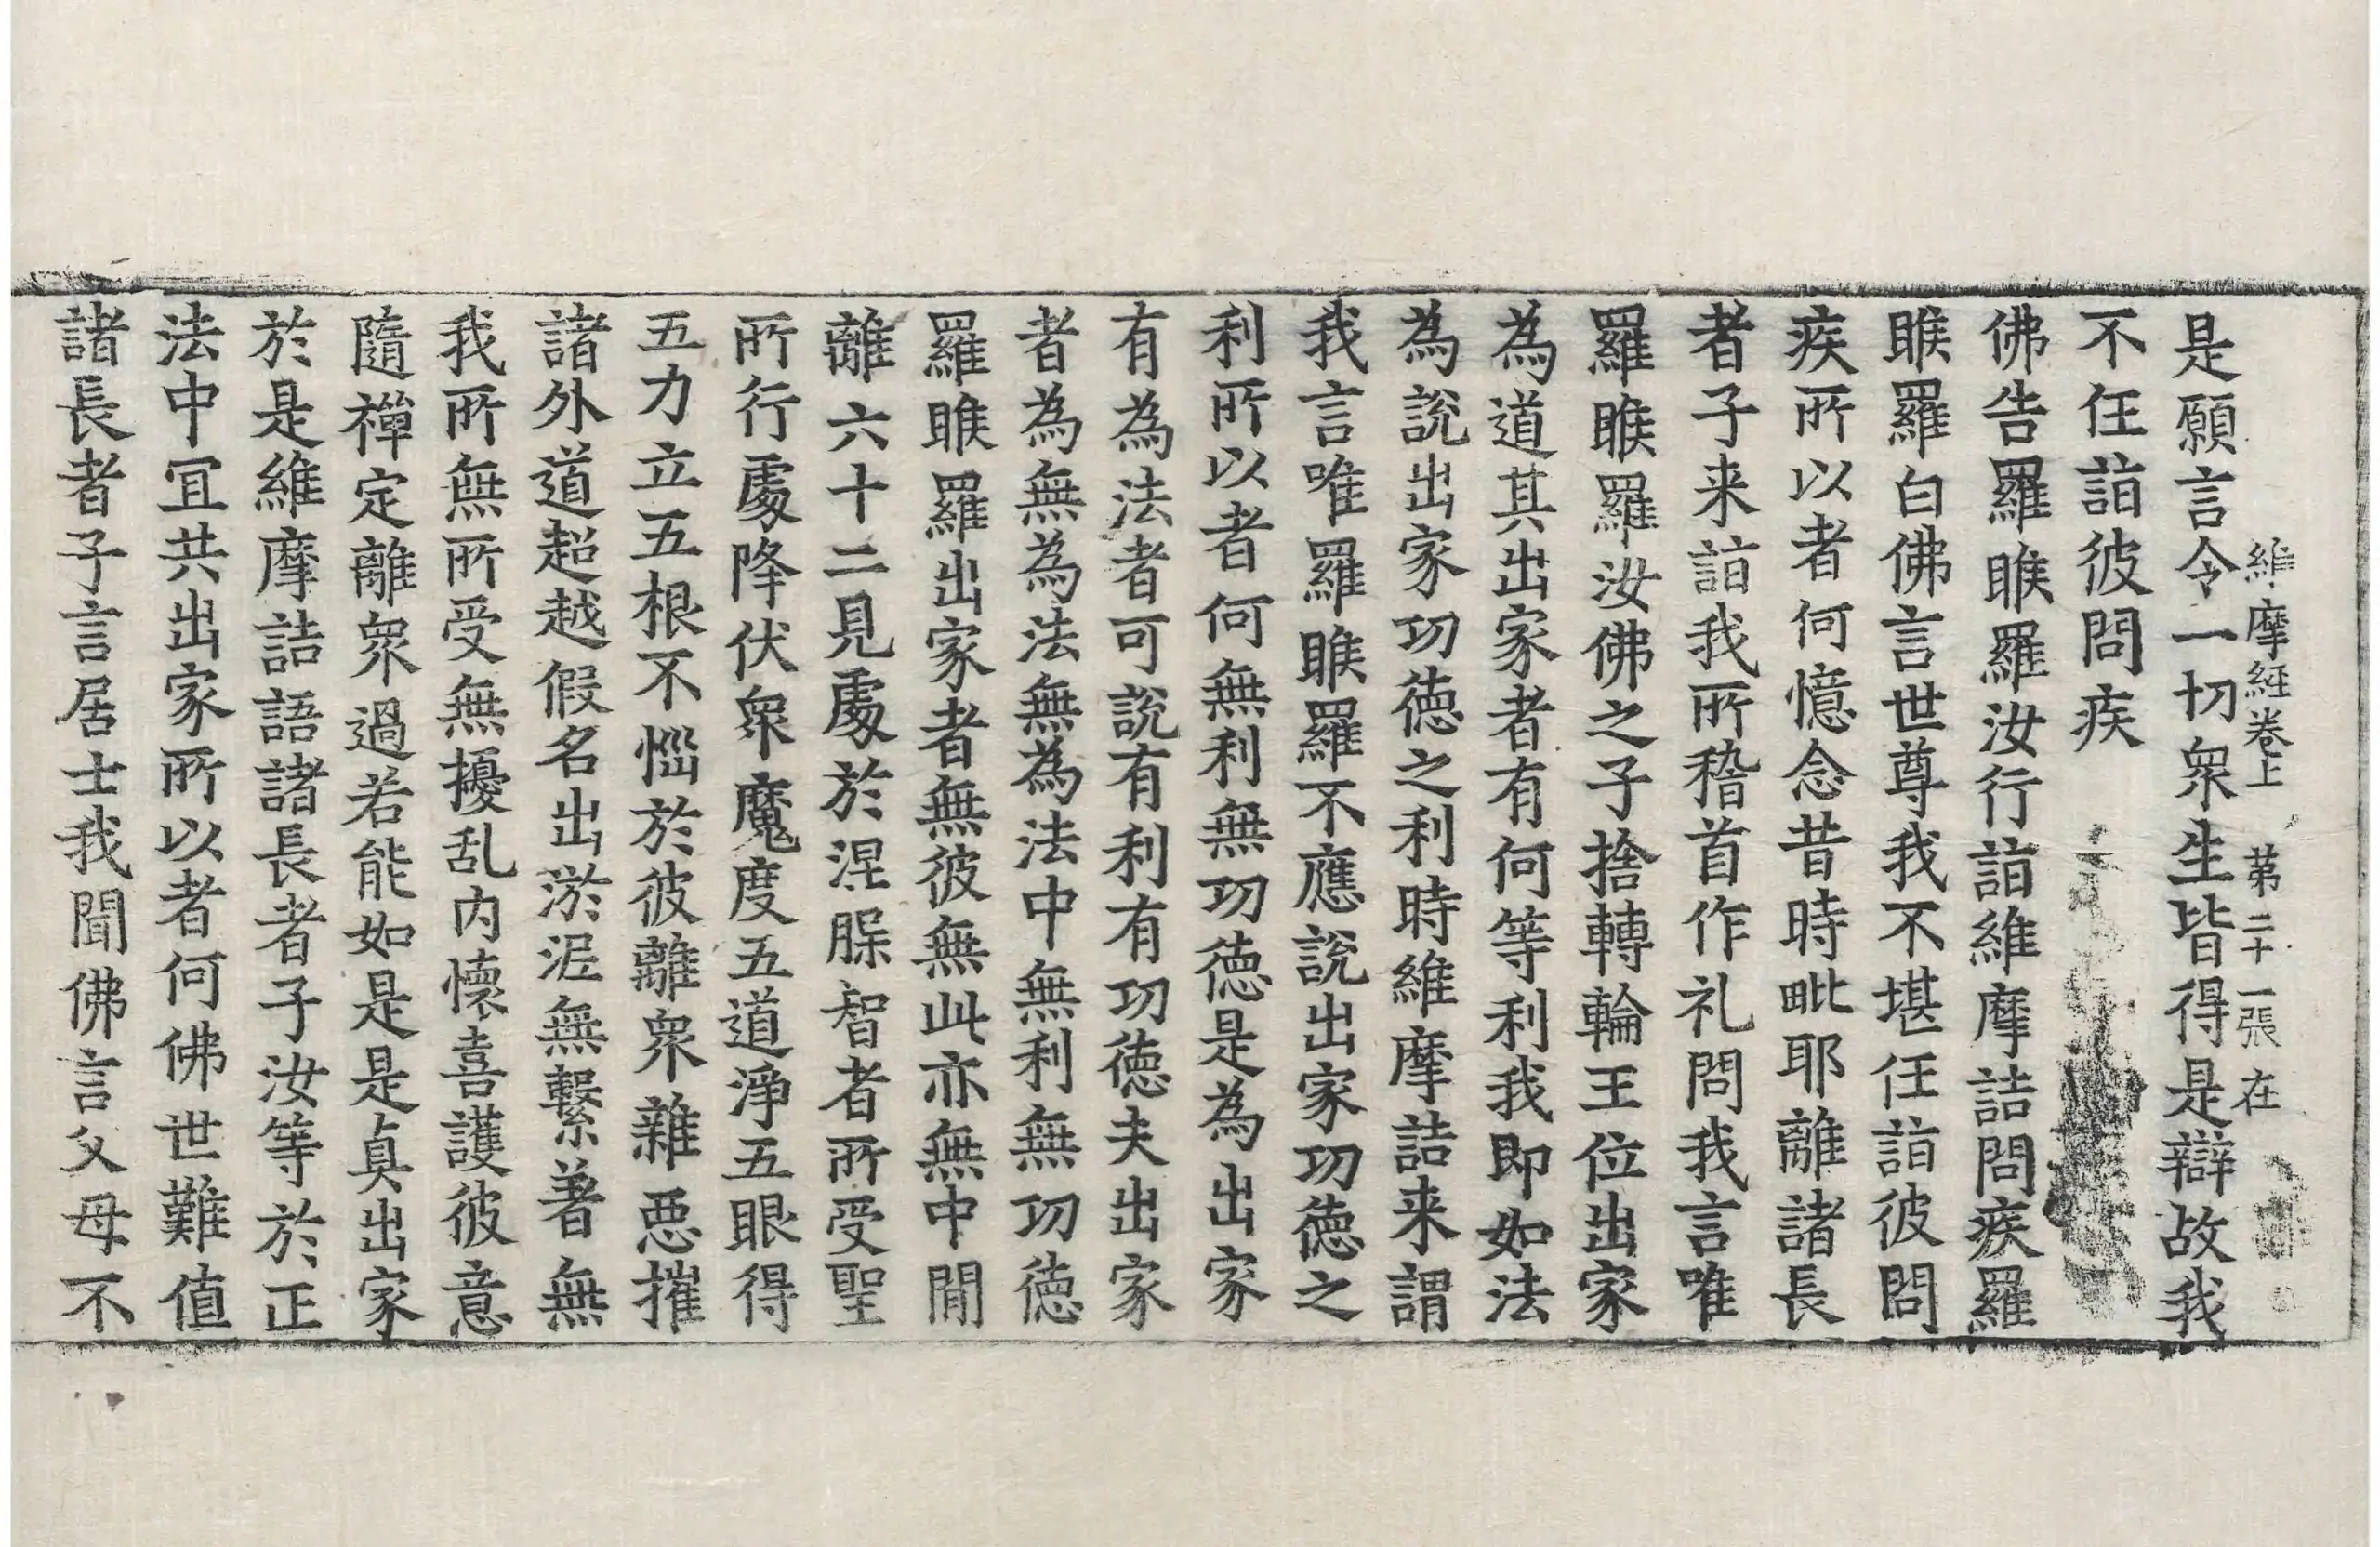 維摩経卷上　第二十一張　在
是願言令一切衆生皆得是辯故我
不任詣彼問疾
佛告羅睺羅汝行詣維摩詰問疾羅
睺羅白佛言世尊我不堪任詣彼問
疾所以者何憶念昔時毗耶離諸長
者子来詣我所稽首作礼問我言唯
羅睺羅汝佛之子捨轉輪王位出家
為道其出家者有何等利我即如法
為說出家功徳之利時維摩詰来謂
我言唯羅睺羅不應說出家功徳之
利所以者何無利無功徳是為出家
有為法者可說有利有功徳夫出家
者為無為法無為法中無利無功徳
羅睺羅出家者無彼無此亦無中間
離六十二見處於涅槃智者所受聖
所行處降伏衆魔度五道淨五眼得
五力立五根不惱於彼離衆雜惡摧
諸外道超越假名出淤泥無繫著無
我所無所受無擾乱内懷喜護彼意
隨禪定離衆過若能如是是真出家
於是維摩詰語諸長者子汝等於正
法中冝共出家所以者何佛世難值
諸長者子言居士我聞佛言父母不